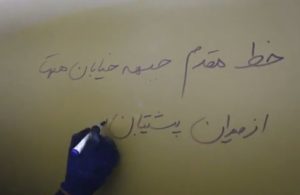 خط مقدم جبهه خیابان هویدا
از میدان پشتیبان